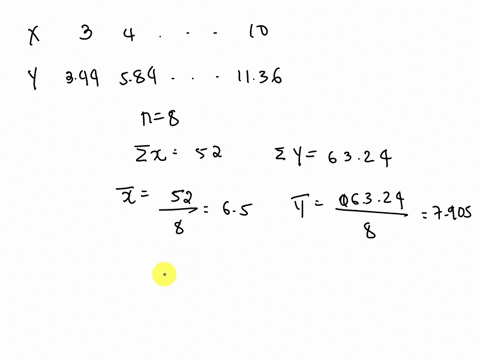 X 3 4 . . . 10
Y 3.99 5.84 . . . 11.36
n=8
Σx = 52 ΣY = 63.24
x̄ = 52/8 = 6.5 Ȳ = 063.24/8 = 7.905